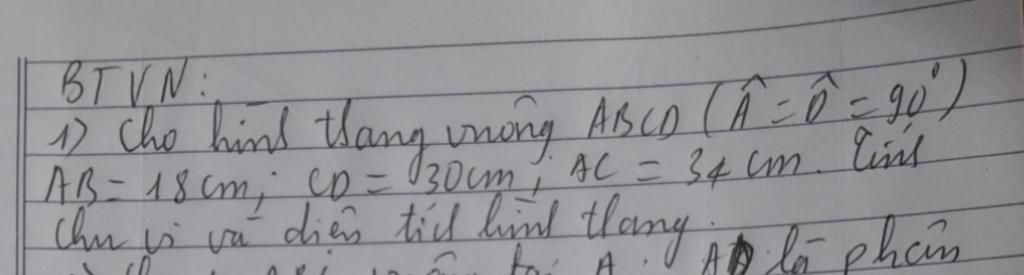 BTVN:
1) Cho hình thang vuông ABCD (Â = D̂ = 90°)
AB = 18cm; CD = 30cm; AC = 34 cm. Tính
chu vi và diện tích hình thang.
tại A. AD là phân